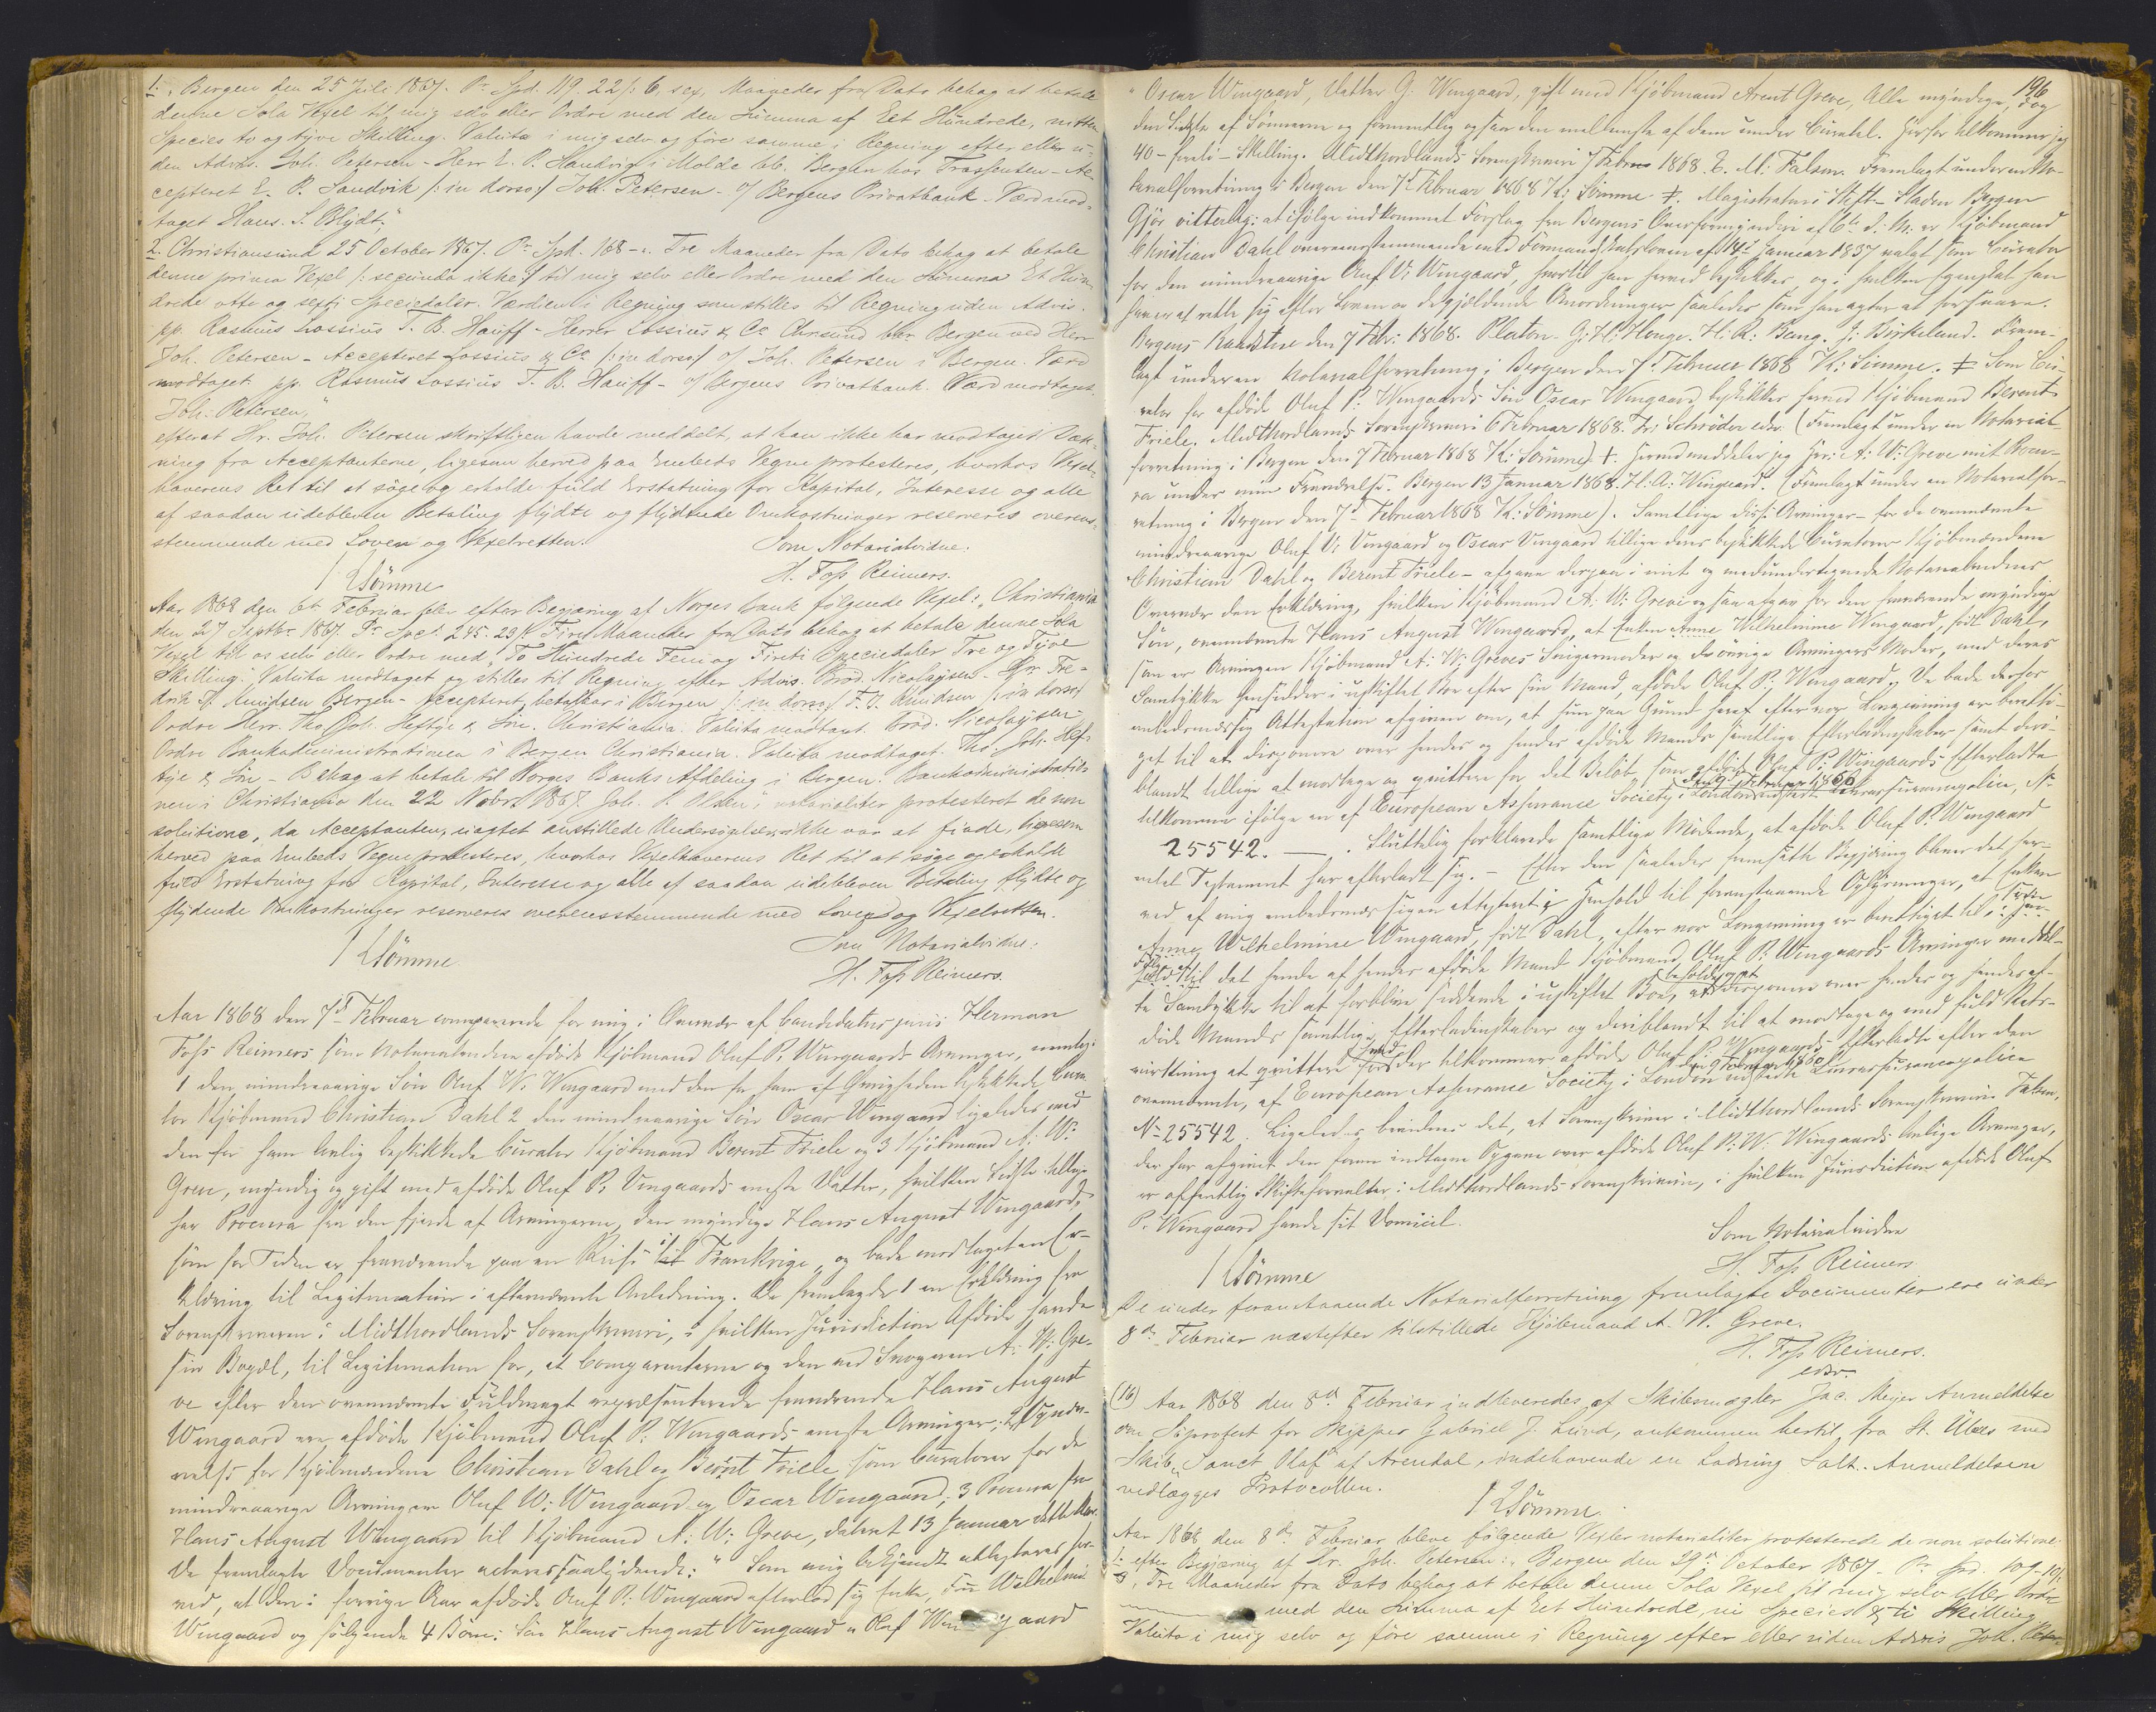 1. "Bergen den 25 Juli 1867. Pr. Spd. 119. 22 s: 6, sex, Maaneder fra Dato behag at betale
denne Sola Vexel til mig selv eller Ordre med den Summa af Eet Hundrede, nitten
Species to og tyve Skilling. Valuta i mig selv og före samme i Regning efter eller u-
den Advis. Joh. Petersen - Herr E. P. Sandvig i Molde bb. Bergen hos Trassenten - Ac-
cepteret E. P. Sandvik /: in dorso :/ Joh. Petersen - o/ Bergens Privatbank - Værd mod-
taget Hans. S. Blydt;"
2. Christiansund 25 October 1867. Pr. Spd. 168 - . Tre Maaneder fra Dato behag at betale
denne prima Vexel /: secunda ikke :/ til mig selv eller Ordre med den Summa Et Hun-
drede otte og sexti Speciedaler. Værdien i Regning som stilles til Regning uden Advis.
pp. Rasmus Lossius T. B. Hauff - Herrer Lossius & Co Chrsund bbr Bergen ved Herr
Joh. Petersen - Accepteret Lossius & Co /: in dorso :/ o/ Joh. Petersen i Bergen. Værd
modtaget pp. Rasmus Lossius T. B. Hauff - o/ Bergens Privatbank. Værd modtaget.
Joh. Petersen,"
efterat Hr. Joh. Petersen skriftligen havde meddelt, at han ikke har modtaget Dæk-
ning fra Acceptanterne, ligesom herved paa Embeds Vegne protesteres, hvorhos Vexel-
haverens Ret til at söge og erholde fuld Erstatning for Kapital, Interesse og alle
af saadan udebleven Betaling flydte og flydende Omkostninger reserveres overens-
stemmende med Loven og Vexelretten.
Som Notarialvidne.
H. Foss Reimers.
K Sömme
Aar 1868 den 6te Februar blev efter Begjæring af Norges Bank følgende Vexel: "Christiania
den 27 Septbr. 1867. Pr. Spd. 245. 23 s. Fire Maaneder fra Dato behag at betale denne Sola
Vexel til os selv eller Ordre med To Hundrede Fem og Firti Speciedaler Tre og Tyve
Skilling. Valuta modtaget og stilles til Regning efter Advis. Brød. Nicolaysen - Hr. Fre-
drik J. Knudsen Bergen - Accepteret, betalbar i Bergen /: in dorso :/ F. J. Knudsen /: in dorso :/
Ordre Herr. Tho. Joh. Heftye & Sön. Christiania. Valuta modtaget. Brød. Nicolaysen
Ordre Bankadministrationen i Bergen Christiania. Valuta modtaget. Tho. Joh. Hef-
tye & Sön - Behag at betale til Norges Banks Afdeling i Bergen. Bankadministratio-
nen i Christiania den 22 Novbr. 1867. Joh. P. Olsen", notarialiter protesteret de non
solutione, da Acceptanten, uagtet anstillede Undersögelser, ikke var at finde, ligesom
herved paa Embeds Vegne protesteres, hvorhos Vexelhaverens Ret til at söge og erholde
fuld Erstatning for Kapital, Interesse og alle af saadan udebleven Betaling flydte og
flydende Omkostninger reserveres overensstemmende med Loven og Vexelretten.
Som Notarialvidne:
H. Foss Reimers.
K Sömme
Aar 1868 den 7de Februar comparerede for mig i Overvær af Candidatus juris Herman
Foss Reimers som Notarialvidne afdøde Kjøbmand Oluf P. Wingaards Arvinger, nemlig:
1 den mindreaarige Søn Oluf W. Wingaard med den for ham af Øvrigheden beskikkede Cura-
tor Kjøbmand Christian Dahl 2 den mindreaarige Søn Oscar Wingaard ligeledes med
den for ham lovlig beskikkede Curator Kjøbmand Berent Friele og 3 Kjøbmand A. W.
Greve, myndig og gift med afdøde Oluf P. Wingaards eneste Datter, hvilken Sidste tillige
har Procura fra den fjerde af Arvingerne, den myndige Hans August Wingaard,
som for Tiden er fraværende paa en Reise til Frankrige, og bade modtaget en Er-
klæring til Legitimation i eftermeldte Anledning. De fremlagde 1 en Erklæring fra
Sorenskriveren i Midthordlands Sorenskriveri, i hvilken Jurisdiction Afdøde havde
sin Bopæl, til Legitimation for, at Comparenterne og den ved Svogeren A. W. Gre-
ve efter den ovennævnte Fuldmagt repræsenterede fraværende Hans August
Wingaard ere afdøde Kjøbmand Oluf P. Wingaards eneste Arvinger; 2 Opnæv-
nelse for Kjøbmændene Christian Dahl og Berent Friele som Curatorer for de
mindreaarige Arvinger Oluf W. Wingaard og Oscar Wingaard; 3 Procura fra
Hans August Wingaard til Kjøbmand A. W. Greve, dateret 13 Januar dette Aar.
De fremlagte Documenter acteres saalydende: "Som mig bekjendt attesteres her-
ved, at den i forrige Aar afdøde Oluf P. Wingaard efterlod sig Enke, Fru Wilhelmine
Wingaard og følgende 4 Børn: Søn Hans August Wingaard " Oluf Wingaard
196
" Oscar Wingaard, Datter G. Wingaard, gift med Kjøbmand Arent Greve, Alle myndige, dog
den Sidste af Sønnerne og formentlig ogsaa den mellemste af dem under Curatel. Herfor tilkommer jeg
40 - firti - Skilling. Midthordlands Sorenskriveri 7 Februar 1868. E. M. Falsen. Fremlagt under en No-
tarialforretning i Bergen den 7de Februar 1868 K. Sömme. ‡. Magistraten i Stift-Staden Bergen
Gjør vitterligt: at ifølge indkommet Forslag fra Bergens Overformynderi af 6te d. M. er Kjøbmand
Christian Dahl overeensstemmende med Formandskabsloven af 14de Januar 1837 valgt som Curator
for den mindreaarige Oluf W. Wingaard, hvortil han herved beskikkes, og i hvilken Egenskab han
haver at rette sig efter Loven og de gjældende Anordninger saaledes som han agter at forsvare.
Bergens Raadstue den 7 Febr. 1868. Platou. Frem-
lagt under en Notarialforretning i Bergen den 7de Februar 1868 K. Sömme. ‡ Som Cu-
rator for afdøde Oluf P. Wingaards Søn Oscar Wingaard beskikkes herved Kjøbmand Berent
Friele. Midthordlands Sorenskriveri 6 Februar 1868. Fr. Schröder edsv. (Fremlagt under en Notarial-
forretning i Bergen den 7 Februar 1868 K. Sömme). ‡. Herved meddeler jeg Hr. A. W. Greve mit Procu-
ra under min Fraværelse. Bergen 13 Januar 1868. H. A. Wingaard. (Fremlagt under en Notarialfor-
retning i Bergen den 7de Februar 1868 K. Sömme). Samtlige disse Arvinger - for de ovennævnte
mindreaarige Oluf W. Wingaard og Oscar Wingaard tillige deres beskikkede Curatorer Kjøbmændene
Christian Dahl og Berent Friele - afgave derpaa i mit og medundertegnede Notarialvidnes
Overvær den Erklæring, hvilken Kjøbmand A. W. Greve ogsaa afgav for den fraværende myndige
Søn, ovennævnte Hans August Wingaard, at Enken Anne Wilhelmine Wingaard, født Dahl,
som er Arvingen Kjøbmand A. W. Greves Svigermoder og de øvrige Arvingers Moder, med deres
Samtykke hensidder i uskiftet Bo efter sin Mand, afdøde Oluf P. Wingaard. De bade derfor
embedsmæssig Attestation afgiven om, at hun paa Grund heraf efter vor Lovgivning er beretti-
get til at disponere over hendes og hendes afdøde Mands samtlige Efterladenskaber samt deri-
blandt tillige at modtage og qvittere for det Beløb, som afdøde Oluf P. Wingaards Efterladte
tilkommer ifølge en af European Assurance Society i London den 9de Februar 1860 udstedt Livsassurancepolice, No
25542. — . Sluttelig forklarede samtlige Mødende, at afdøde Oluf P. Wingaard
intet Testament har efterladt sig. - Efter den saaledes fremsatte Begjæring bliver det her-
ved af mig embedsmæssigen attesteret i Henhold til foranstaaende Oplysninger, at Enken
Anne Wilhelmine Wingaard, født Dahl, efter vor Lovgivning er berettiget til, i
Følge det hende af hendes afdøde Mand Kjøbmand Oluf P. Wingaards Arvinger meddel-
te Samtykke til at forblive siddende i uskiftet Bo, at beholde og at disponere over hendes og hendes af-
døde Mands samtlige Efterladenskaber og deriblandt til at modtage og med fuld Rets-
virkning at qvittere for hvad der tilkommer afdøde Oluf P. Wingaards Efterladte efter den
ovennævnte, af European Assurance Society i London den 9 Februar 1860 udstedte Livsassurancepolice
No 25542. Ligeledes bevidnes det, at Sorenskriver i Midthordlands Sorenskriveri Falsen,
der har afgivet den foran indtagne Opgave over afdøde Oluf P. W. Wingaards lovlige Arvinger,
er offentlig Skifteforvalter i Midthordlands Sorenskriveri, i hvilken Jurisdiction afdøde Oluf
P. Wingaard havde sit Domicil.
Som Notarialvidne
H. Foss Reimers
K Sömme
De under foranstaaende Notarialforretning fremlagte Documenter ere under
8de Februar næstefter tilstillede Kjöbmand A. W. Greve.
H. Foss Reimers.
edsv.
(16) Aar 1868 den 8de Februar indleveredes af Skibsmægler Jac. Meyer Anmeldelse
om Söprotest for Skipper Gabriel J. Lund, ankommen hertil fra St. Übes med
Skib "Sanct Olaf" af Arendal, indehavende en Ladning Salt. Anmeldelsen
vedlægges Protocollen.
K Sömme
Aar 1868 den 8de Februar bleve følgende Vexler notarialiter protesterede de non solutione:
1. efter Begjæring af Hr. Joh. Petersen: "Bergen den 29de October 1867. Pr. Spd. 109-10 s.
3, Tre Maaneder fra Dato behag at betale denne Sola Vexel til mig selv eller Ordre
med den Summa af Eet Hundrede, ni Species & ti Skilling
Valuta i mig selv og före samme i Regning efter eller uden Advis Joh. Peter-